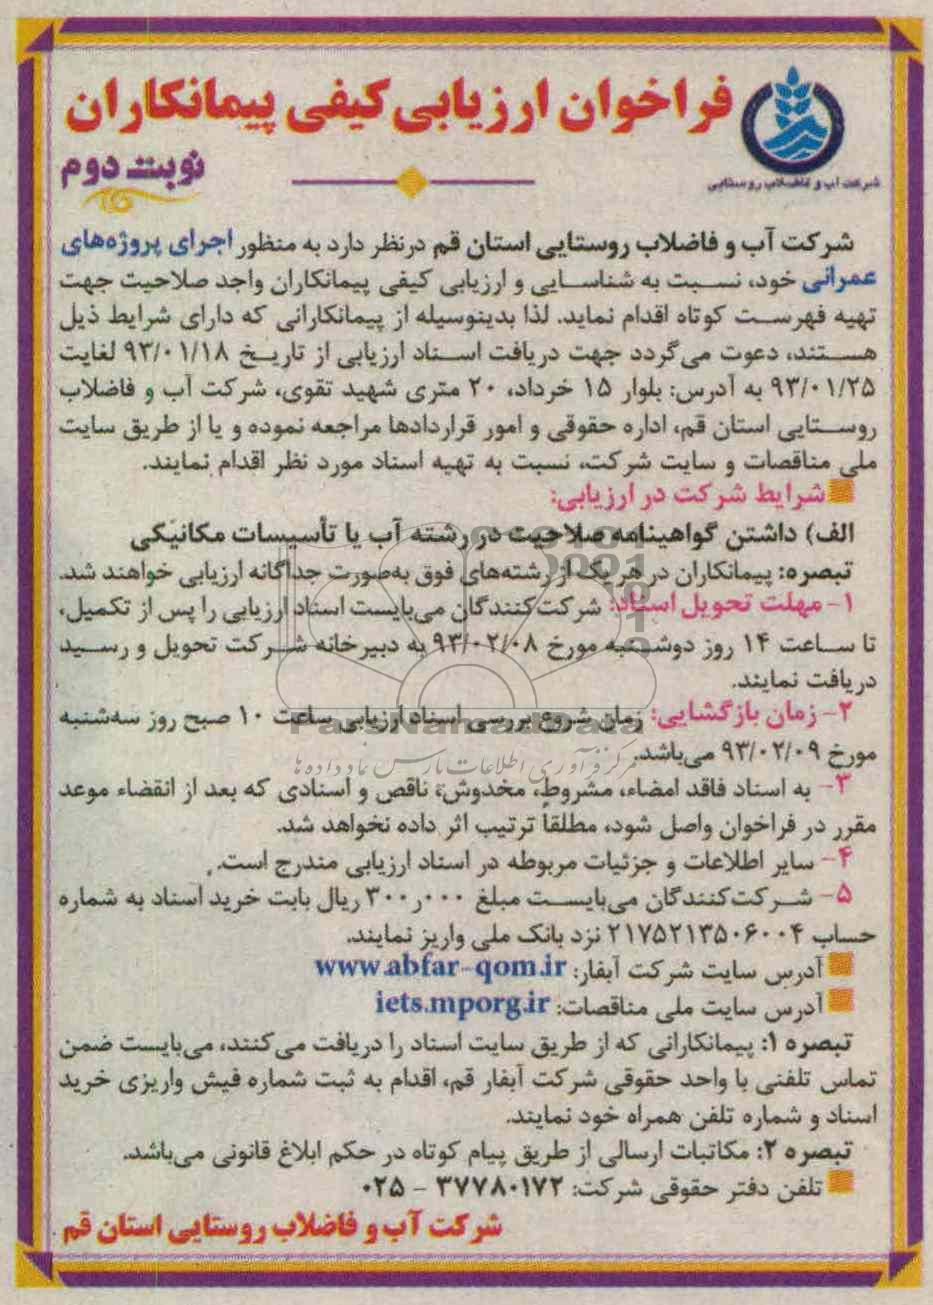 فراخوان ارزیابی کیفی پیمانکاران
شرکت آب و فاضلاب روستایی
نوبت دوم
شرکت آب و فاضلاب روستایی استان قم درنظر دارد به منظور اجرای پروژه‌های
عمرانی خود، نسبت به شناسایی و ارزیابی کیفی پیمانکاران واجد صلاحیت جهت
تهیه فهرست کوتاه اقدام نماید. لذا بدینوسیله از پیمانکارانی که دارای شرایط ذیل
هستند، دعوت می‌گردد جهت دریافت اسناد ارزیابی از تاریخ ۹۳/۰۱/۱۸ لغایت
۹۳/۰۱/۲۵ به آدرس: بلوار ۱۵ خرداد، ۲۰ متری شهید تقوی، شرکت آب و فاضلاب
روستایی استان قم، اداره حقوقی و امور قراردادها مراجعه نموده و یا از طریق سایت
ملی مناقصات و سایت شرکت، نسبت به تهیه اسناد مورد نظر اقدام نمایند.
شرایط شرکت در ارزیابی:
الف) داشتن گواهینامه صلاحیت در رشته آب یا تأسیسات مکانیکی
تبصره: پیمانکاران در هر یک از رشته‌های فوق به‌صورت جداگانه ارزیابی خواهند شد.
۱- مهلت تحویل اسناد: شرکت‌کنندگان می‌بایست اسناد ارزیابی را پس از تکمیل،
تا ساعت ۱۴ روز دوشنبه مورخ ۹۳/۰۲/۰۸ به دبیرخانه شرکت تحویل و رسید
دریافت نمایند.
۲- زمان بازگشایی: زمان شروع بررسی اسناد ارزیابی ساعت ۱۰ صبح روز سه‌شنبه
ParsNamadData
مورخ ۹۳/۰۲/۰۹ می‌باشد.
مرکز فرآوری اطلاعات پارس نماد داده ها
۳- به اسناد فاقد امضاء، مشروط، مخدوش، ناقص و اسنادی که بعد از انقضاء موعد
مقرر در فراخوان واصل شود، مطلقاً ترتیب اثر داده نخواهد شد.
۴- سایر اطلاعات و جزئیات مربوطه در اسناد ارزیابی مندرج است.
۵- شرکت‌کنندگان می‌بایست مبلغ ۳۰۰ر۰۰۰ ریال بابت خرید اسناد به شماره
حساب ۲۱۷۵۲۱۳۵۰۶۰۰۴ نزد بانک ملی واریز نمایند.
آدرس سایت شرکت آبفار: www.abfar-qom.ir
آدرس سایت ملی مناقصات: iets.mporg.ir
تبصره ۱: پیمانکارانی که از طریق سایت اسناد را دریافت می‌کنند، می‌بایست ضمن
تماس تلفنی با واحد حقوقی شرکت آبفار قم، اقدام به ثبت شماره فیش واریزی خرید
اسناد و شماره تلفن همراه خود نمایند.
تبصره ۲: مکاتبات ارسالی از طریق پیام کوتاه در حکم ابلاغ قانونی می‌باشد.
تلفن دفتر حقوقی شرکت: ۳۷۷۸۰۱۷۲ - ۰۲۵
شرکت آب و فاضلاب روستایی استان قم